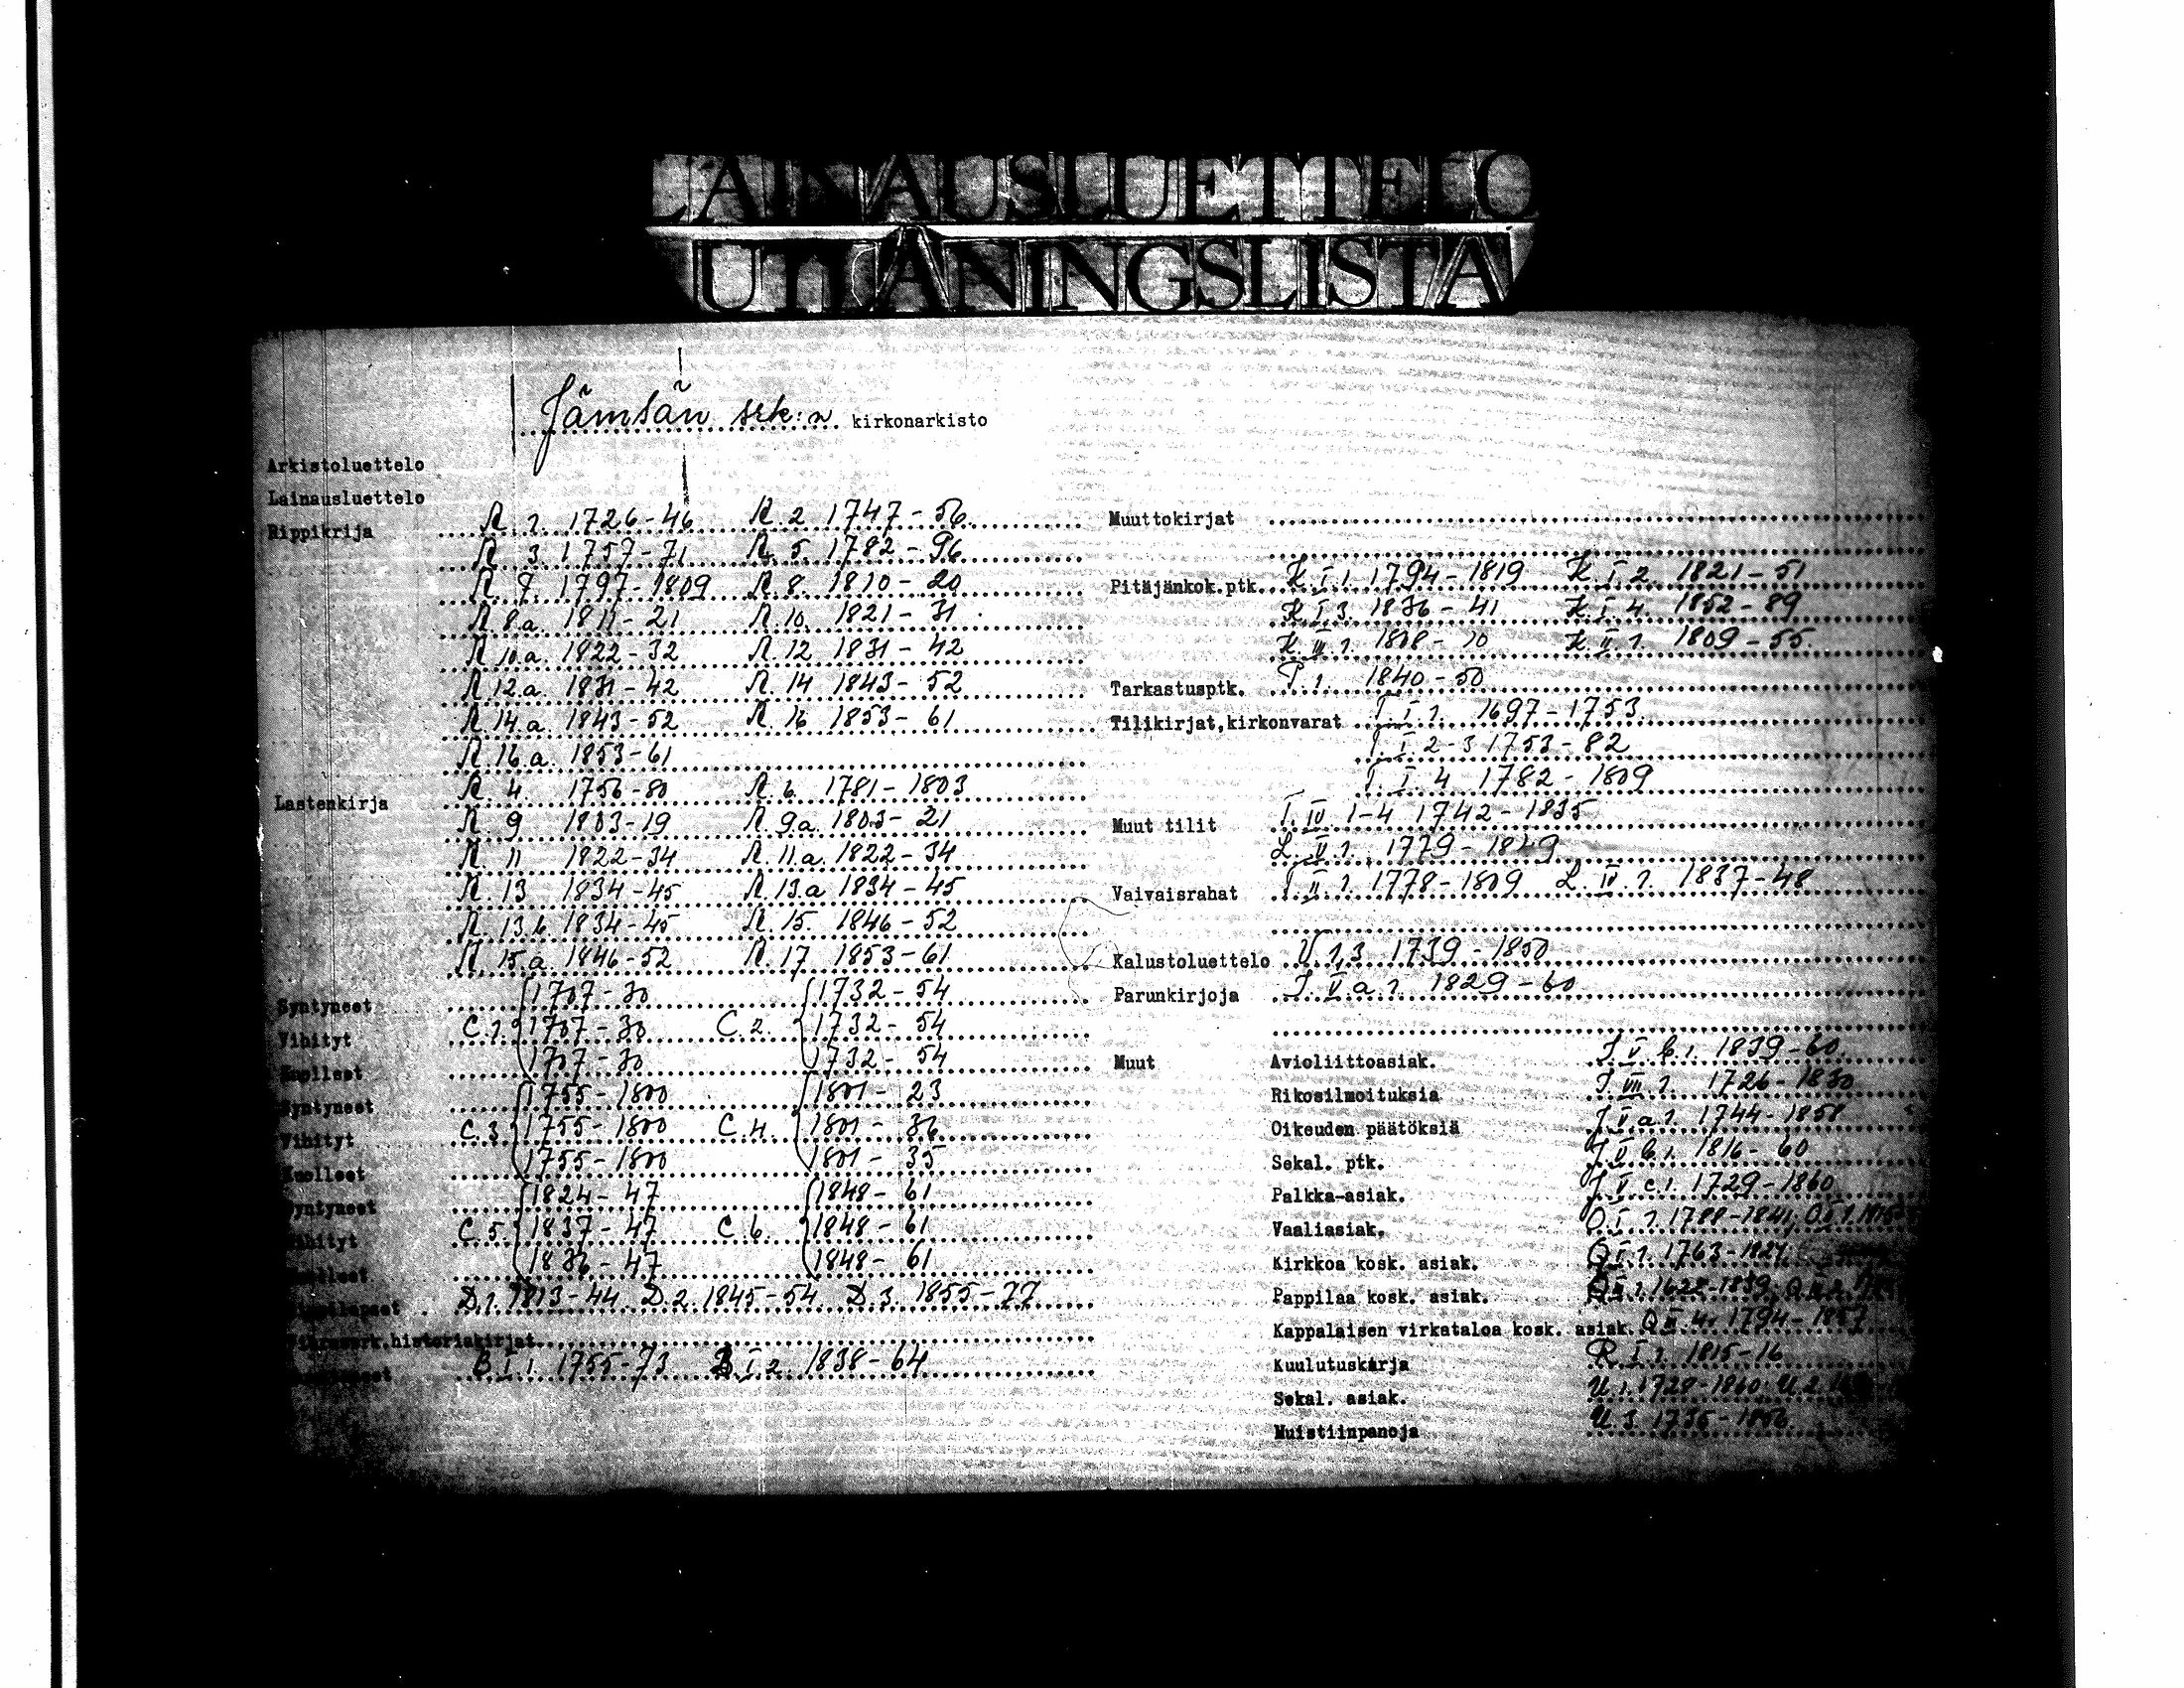 LAINAUSLUETTELO
UTLÅNINGSLISTA
Jämsän srk:n kirkonarkisto
Arkistoluettelo
Lainausluettelo
Rippikrija R. 1. 1726-46 R. 2 1747-56
R. 3. 1757-71 R. 5. 1782-96
R. 7. 1797-1809 R. 8. 1810-20
R. 8.a. 1811-21 R. 10. 1821-31
R. 10.a. 1822-32 R. 12 1831-42
R. 12.a. 1831-42 R. 14 1843-52
R. 14.a 1843-52 R. 16 1853-61
R. 16.a. 1853-61
Lastenkirja R. 4 1756-80 R. 6. 1781-1803
R. 9 1803-19 R. 9a. 1803-21
R. 11 1822-34 R. 11.a. 1822-34
R. 13 1834-45 R. 13.a 1834-45
R. 13.b. 1834-45 R. 15. 1846-52
R. 15.a 1846-52 R. 17 1853-61
Syntyneet 1707-30 1732-54
Vihityt C. 1. 1707-30 C. 2. 1732-54
Kuolleet 1707-30 1732-54
Syntyneet 1755-1800 1801-23
Vihityt C. 3. 1755-1800 C. 4. 1801-36
Kuolleet 1755-1800 1801-35
Syntyneet 1824-47 1848-61
Vihityt C. 5. 1837-47 C. 6. 1848-61
Kuolleet 1836-47 1848-61
D. 1. 1813-44 D. 2. 1845-54 D. 3. 1855-77
historiakirjat
B. I. 1. 1755-73 B. I. 2. 1838-64
Muuttokirjat
Pitäjänkok.ptk. K. I. 1. 1794-1819 K. I. 2. 1821-51
K. I. 3. 1836-41 K. I. 4. 1852-89
K. III. 1. 1808-10 K. II. 1. 1809-55.
Tarkastusptk. P. 1. 1840-50
Tilikirjat,kirkonvarat T. I. 1. 1697-1753
T. I 2-3 1753-82
T. I. 4 1782-1809
Muut tilit T. IV. 1-4 1742-1835
L. V. 1. 1779-1849
Vaivaisrahat T. II. 1. 1778-1809 L. IV. 1. 1837-48
Kalustoluettelo U. 1,3 1739-1850
Parunkirjoja J. V. a. 1. 1829-60
Muut Avioliittoasiak. J. V. b. 1. 1839-60.
Rikosilmoituksia J. VII. 1. 1726-1830
Oikeuden päätöksiä J. V. a. 1. 1744-1858
Sekal. ptk. J. V. b. 1. 1816-60
Palkka-asiak. J. V. c. 1. 1729-1860
Vaaliasiak. O. I. 1. 1788-1841,
Kirkkoa kosk. asiak. Q. I. 1. 1763-1827.
Pappilaa kosk. asiak. Q. II. 1. 1622-1839,
Kappalaisen virkataloa kosk. asiak. Q. II. 4. 1794-1857
Kuulutuskirja R. I. 1. 1815-16
Sekal. asiak. U. 1. 1728-1860. U. 2.
Muistiinpanoja U. 3. 1735-1856.